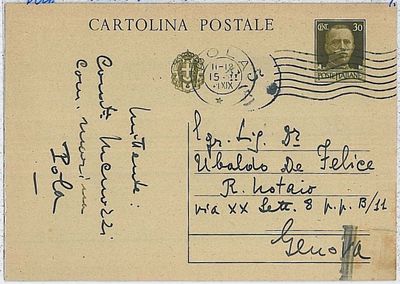 CARTOLINA POSTALE
CENT. 30
POSTE ITALIANE
POLA
11-12
15. II
XIX
Mittente:
Com. marina
Pola
Egr. Sig. Dr
Ubaldo De Felice
R. Notaio
via XX Sett. 8 p.p. B/11
Genova